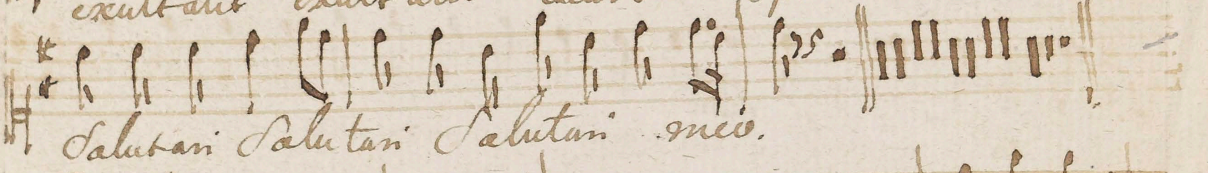 exultavit
Salutari Salutari Salutari meo.